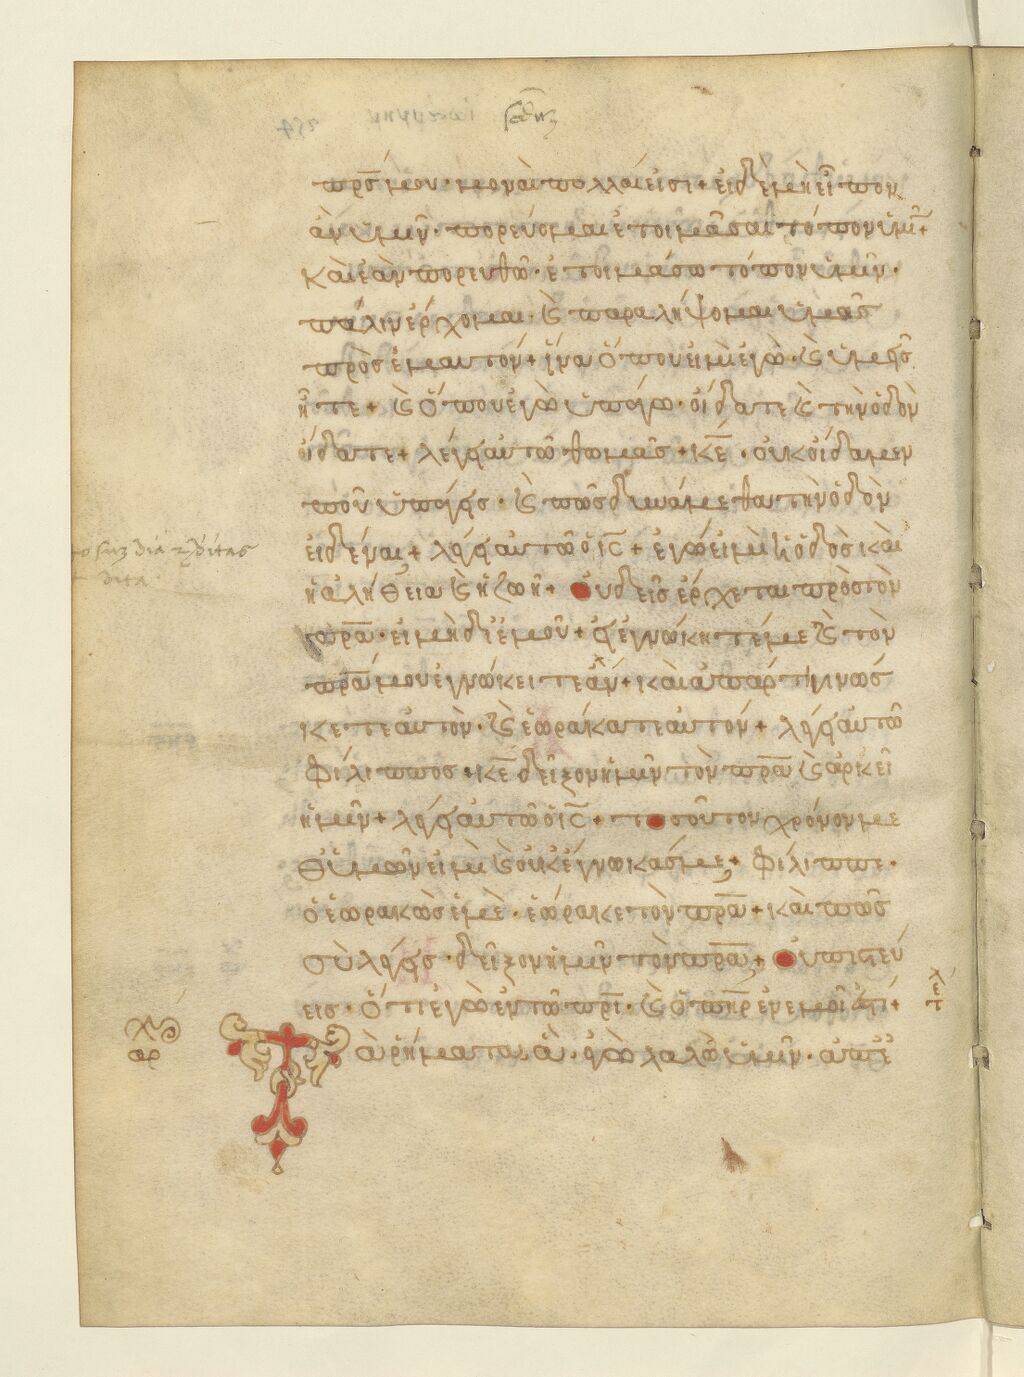 πρ̅ς μου· μοναὶ πολλαί εἰσι+ εἰ δὲ μὴ εἶπον
ἂν ὑμῖν· πορεύομαι ἑτοιμᾶσαι τόπον ὑμῖν+
καὶ ἐὰν πορευθῶ· ἑτοιμάσω τόπον ὑμῖν·
πάλιν ἔρχομαι· ϗ παραλήψομαι ὑμᾶς
πρὸς ἐμαυτόν+ ἵνα ὅπου εἰμὶ ἐγὼ· ϗ ὑμεῖς
ἦτε+ ϗ ὅπου ἐγὼ ὑπάγω· οἴδατε ϗ τὴν ὁδὸν
οἴδατε+ λέγει αὐτῶ θωμᾶς+ κ̅ε· οὐκ οἴδαμεν
ποῦ ὑπάγεις· ϗ πῶς δυνάμεθα τὴν ὁδὸν
εἰδέναι+ λέγει αὐτῶ ὁ ι̅ς+ ἐγώ εἰμὶ ἡ ὁδὸς καὶ
ἡ ἀλήθεια ϗ ἡ ζωή+ οὐδεὶς ἔρχεται πρὸς τὸν
πρ̅α· εἰ μὴ δι ἐμοῦ+ εἰ ἐγνώκητέ με ϗ τὸν
πρ̅α μου ἐγνώκειτε ἄν+ καὶ ἀπάρτι γινώς
κετε αὐτὸν· ϗ ἑωράκατε αὐτόν+ λέγει αὐτῶ
φίλιππος+ κ̅ε δεῖξον ἡμῖν τὸν πρ̅α ϗ ἀρκεῖ
ἡμῖν+ λέγει αὐτῶ ὁ ι̅ς+ τοσοῦτον χρόνον με
θ ὑμῶν εἰμὶ ϗ οὐκ ἔγνωκάς με, φίλιππε·
ὁ ἑωρακὼς ἐμὲ· ἑώρακε τὸν πρ̅α+ καὶ πῶς
σὺ λέγεις· δεῖξον ἡμῖν τὸν πρ̅α, οὐ πιστεύ
εις· ὅτι ἐγὼ ἐν τῶ πρ̅ι· ϗ ὁ πη̅ρ ἐν ἐμοί ἐστι+
Τὰ ῥήματα ἃ· ἐγὼ λαλῶ ὑμῖν· ἀπ ἐ